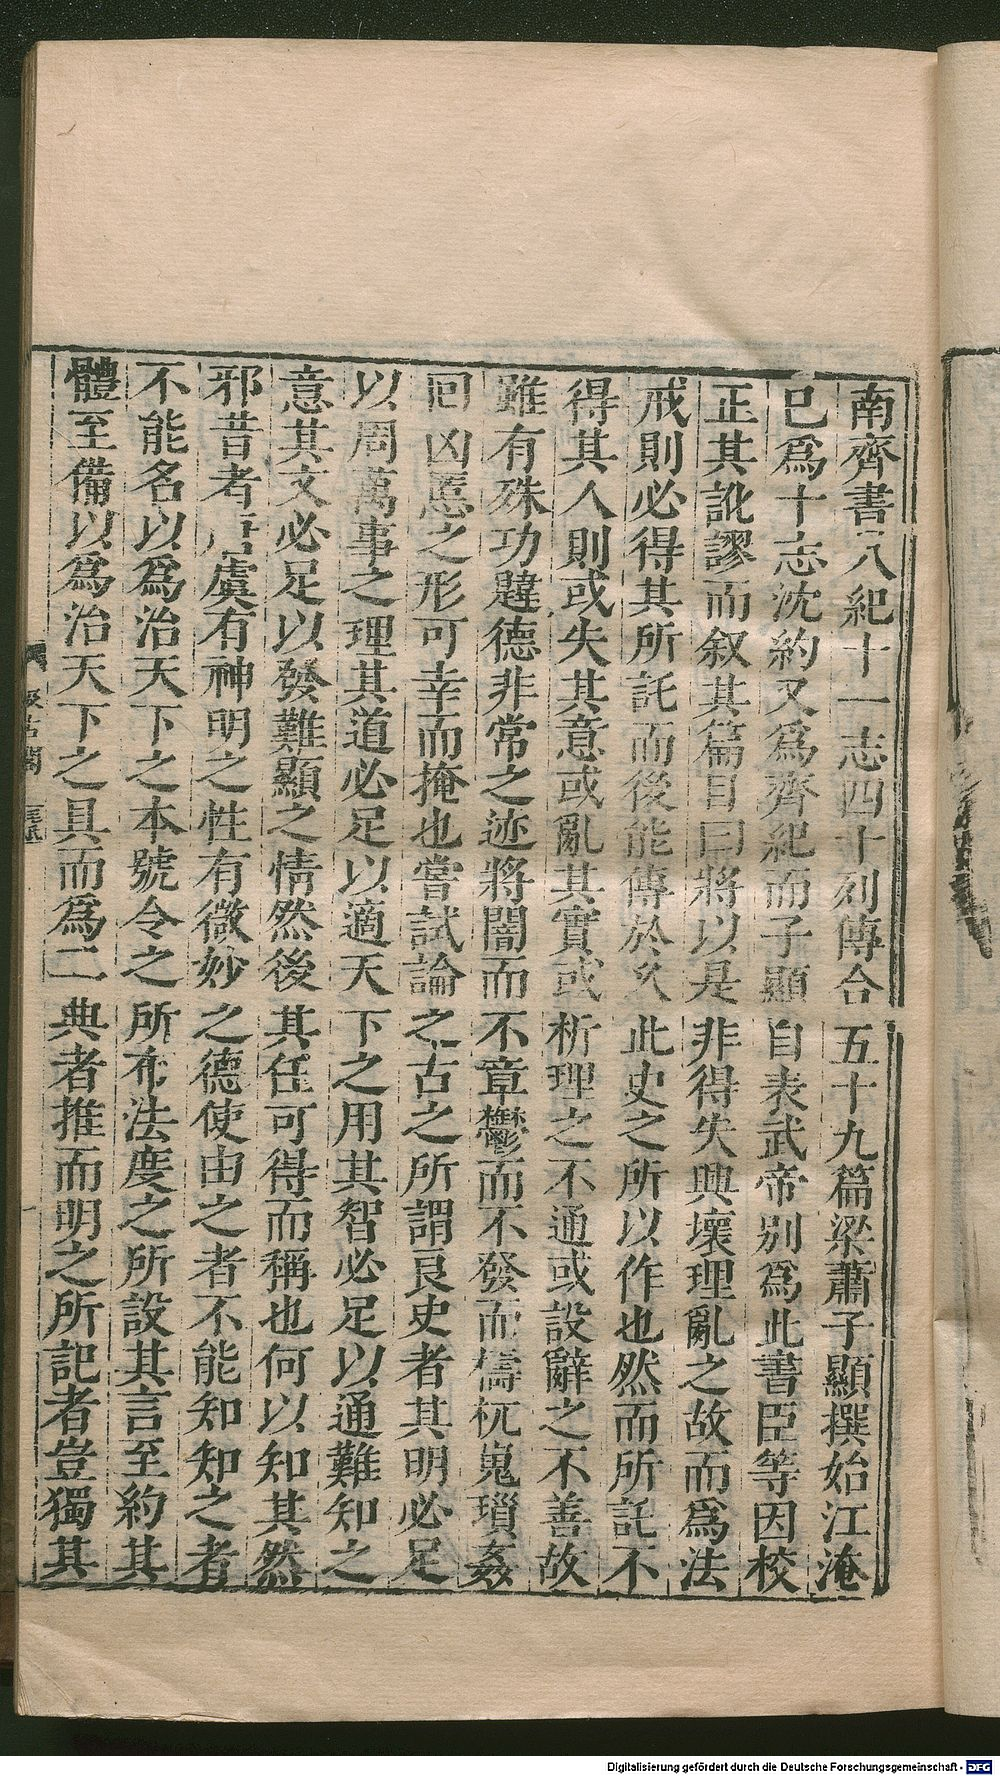 南齊書八紀十一志四十列傳合五十九篇梁蕭子顯撰始江淹
已爲十志沈約又爲齊紀而子顯自表武帝别爲此書臣等因校
正其訛謬而叙其篇目曰將以是非得失興壞理亂之故而爲法
戒則必得其所託而後能傳於久此史之所以作也然而所託不
得其人則或失其意或亂其實或析理之不通或設辭之不善故
雖有殊功韙德非常之迹將闇而不章鬱而不發而檮杌嵬瑣姦
回凶慝之形可幸而掩也嘗試論之古之所謂良史者其明必足
以周萬事之理其道必足以適天下之用其智必足以通難知之
意其文必足以發難顯之情然後其任可得而稱也何以知其然
邪昔者唐虞有神明之性有微妙之德使由之者不能知知之者
不能名以爲治天下之本號令之所布法度之所設其言至約其
體至備以爲治天下之具而爲二典者推而明之所記者豈獨其
汲古閣
毛氏
Digitalisierung gefördert durch die Deutsche Forschungsgemeinschaft - DFG